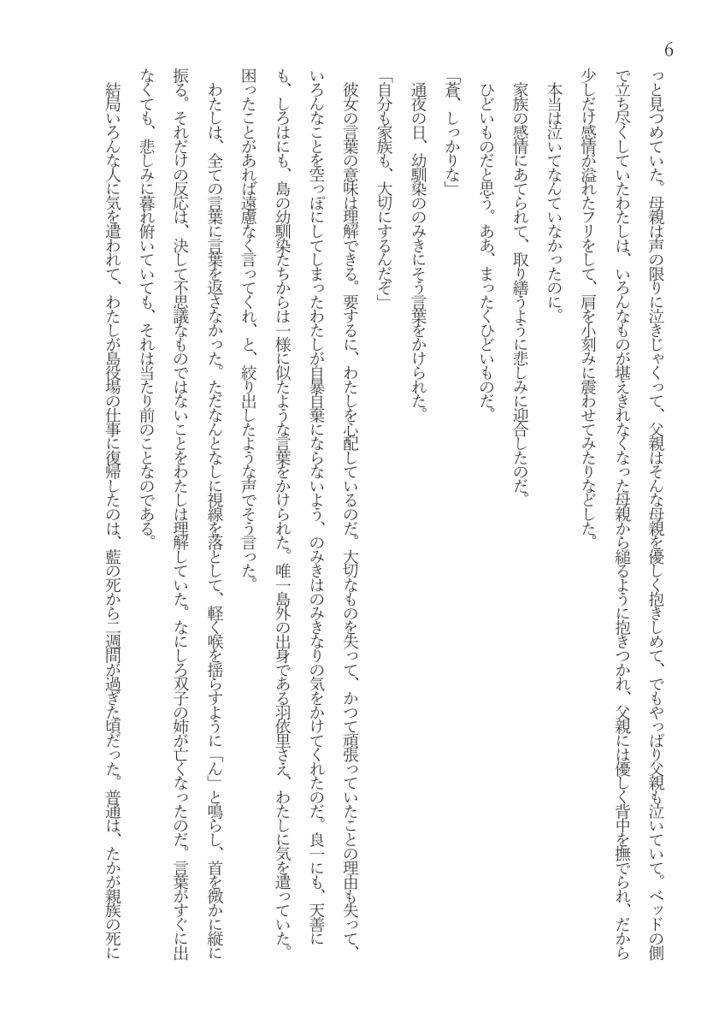 6
っと見つめていた。母親は声の限りに泣きじゃくって、父親はそんな母親を優しく抱きしめて、でもやっぱり父親も泣いていて。ベッドの側
で立ち尽くしていたわたしは、いろんなものが堪えきれなくなった母親から縋るように抱きつかれ、父親には優しく背中を撫でられ、だから
少しだけ感情が溢れたフリをして、肩を小刻みに震わせてみたりなどした。
本当は泣いてなんていなかったのに。
家族の感情にあてられて、取り繕うように悲しみに迎合したのだ。
ひどいものだと思う。ああ、まったくひどいものだ。
「蒼、しっかりな」
通夜の日、幼馴染ののみきにそう言葉をかけられた。
「自分も家族も、大切にするんだぞ」
彼女の言葉の意味は理解できる。要するに、わたしを心配しているのだ。大切なものを失って、かつて頑張っていたことの理由も失って、
いろんなことを空っぽにしてしまったわたしが自暴自棄にならないよう、のみきはのみきなりの気をかけてくれたのだ。良一にも、天善に
も、しろはにも、島の幼馴染たちからは一様に似たような言葉をかけられた。唯一島外の出身である羽依里さえ、わたしに気を遣っていた。
困ったことがあれば遠慮なく言ってくれ、と、絞り出したような声でそう言った。
わたしは、全ての言葉に言葉を返さなかった。ただなんとなしに視線を落として、軽く喉を揺らすように「ん」と鳴らし、首を微かに縦に
振る。それだけの反応は、決して不思議なものではないことをわたしは理解していた。なにしろ双子の姉が亡くなったのだ。言葉がすぐに出
なくても、悲しみに暮れ俯いていても、それは当たり前のことなのである。
結局いろんな人に気を遣われて、わたしが島役場の仕事に復帰したのは、藍の死から二週間が過ぎた頃だった。普通は、たかが親族の死に